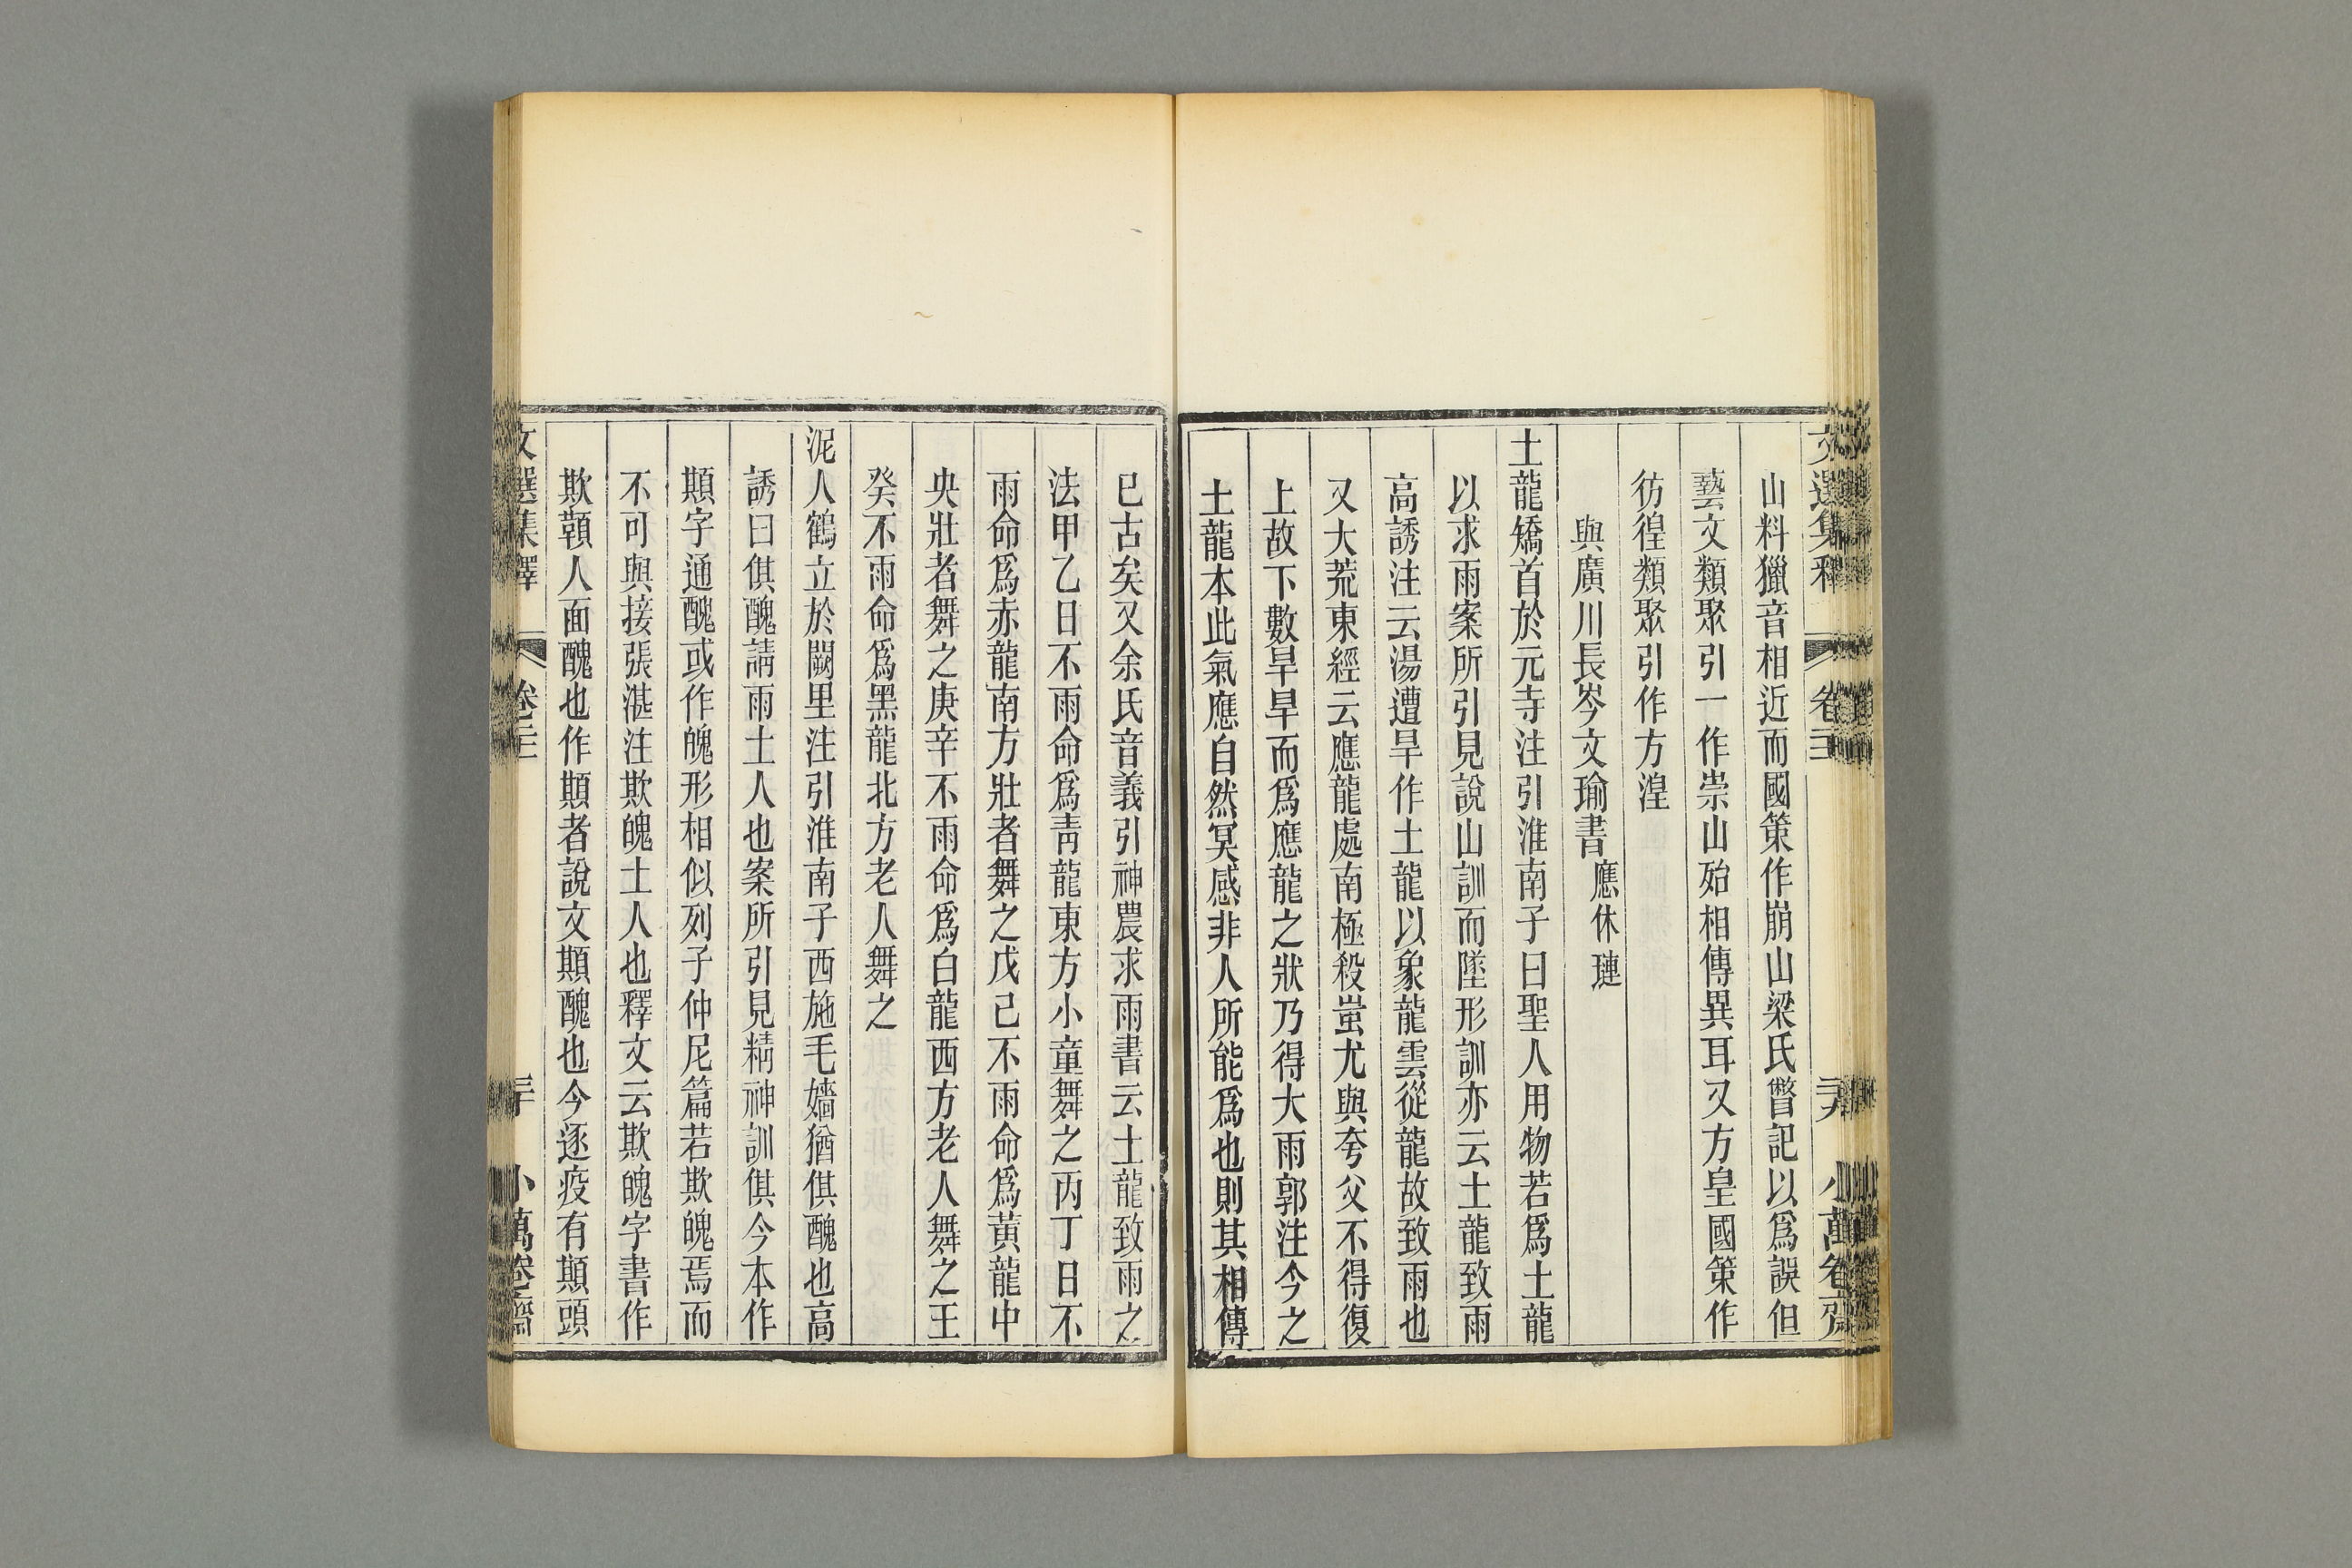 山料獵音相近而國策作崩山梁氏瞥記以爲誤但
藝文類聚引一作崇山殆相傳異耳又方皇國策作
彷徨類聚引作方湟
與廣川長岑文瑜書應休璉
土龍矯首於元寺注引淮南子曰聖人用物若爲土龍
以求雨案所引見說山訓而墬形訓亦云土龍致雨
高誘注云湯遭旱作土龍以象龍雲從龍故致雨也
又大荒東經云應龍處南極殺蚩尤與夸父不得復
上故下數旱旱而爲應龍之狀乃得大雨郭注今之
土龍本此氣應自然冥感非人所能爲也則其相傳
已古矣又余氏音義引神農求雨書云土龍致雨之
法甲乙日不雨命爲靑龍東方小童舞之丙丁日不
雨命爲赤龍南方壯者舞之戊己不雨命爲黃龍中
央壯者舞之庚辛不雨命爲白龍西方老人舞之壬
癸不雨命爲黑龍北方老人舞之
泥人鶴立於闕里注引淮南子西施毛嬙猶倛醜也高
誘曰倛醜請雨土人也案所引見精神訓倛今本作
䫏字通醜或作魄形相似列子仲尼篇若欺魄焉而
不可與接張湛注欺魄土人也釋文云欺魄字書作
欺䫏人面醜也作䫏者說文䫏醜也今逐疫有䫏頭
文選集釋 卷二十 三十 小萬卷齋